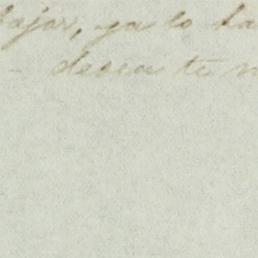 bajar, ya lo ha
- desea tu